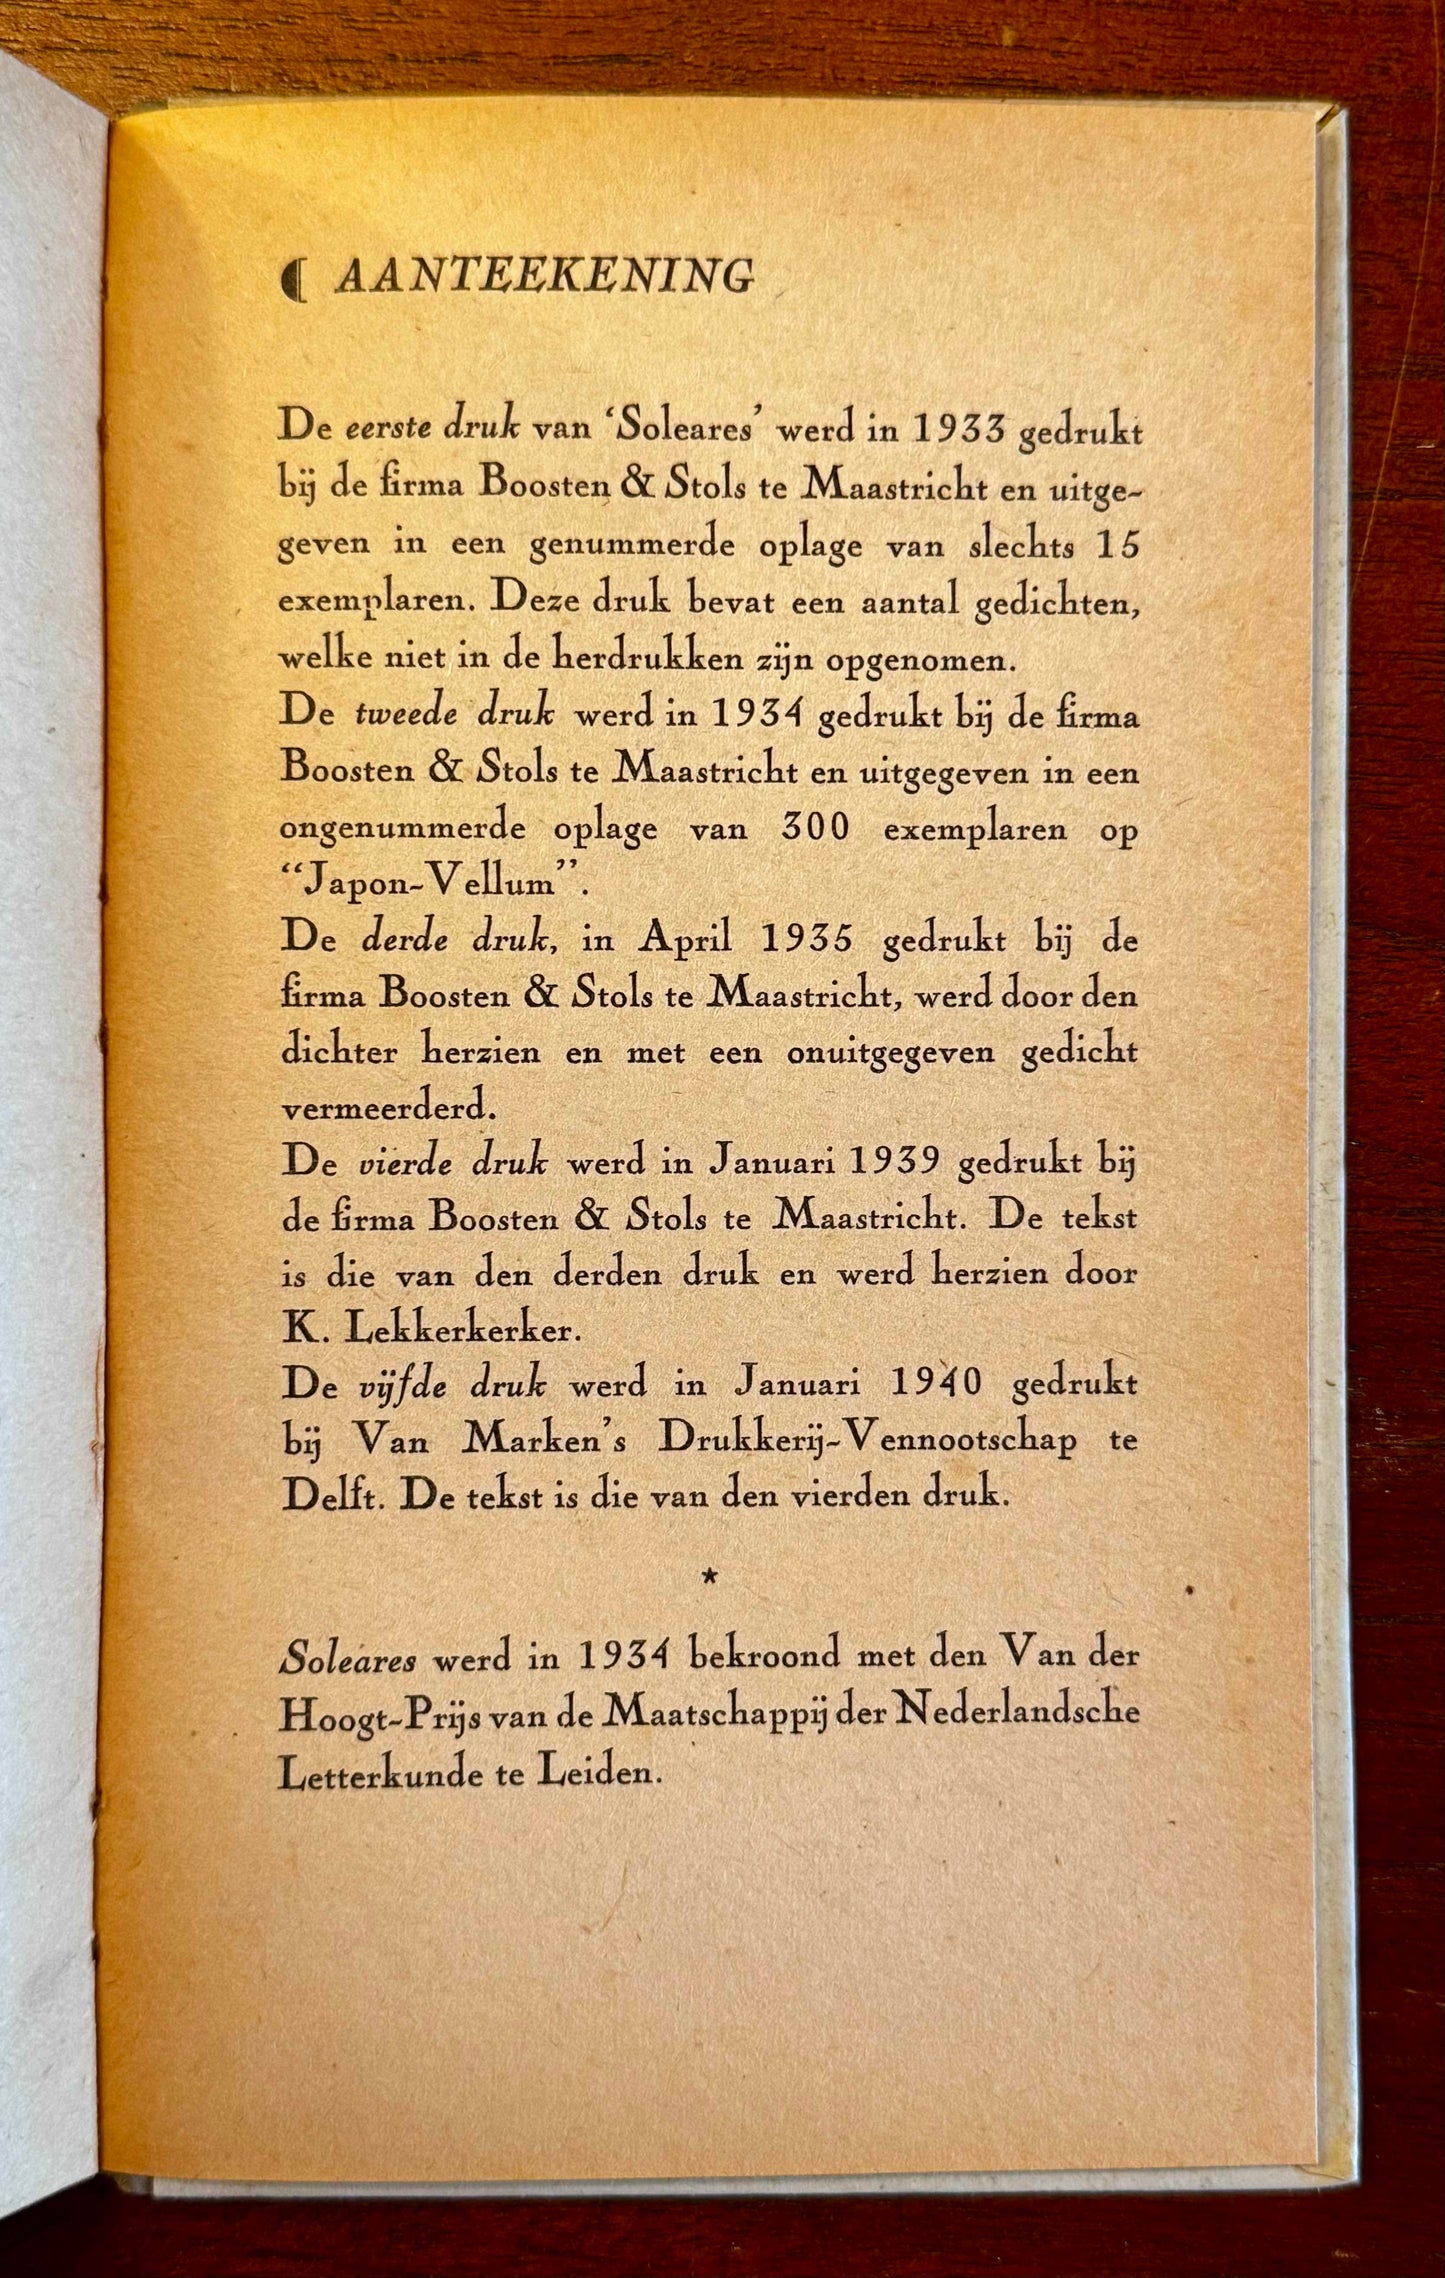 AANTEEKENING
De eerste druk van ‘Soleares’ werd in 1933 gedrukt
bij de firma Boosten & Stols te Maastricht en uitge-
geven in een genummerde oplage van slechts 15
exemplaren. Deze druk bevat een aantal gedichten,
welke niet in de herdrukken zijn opgenomen.
De tweede druk werd in 1934 gedrukt bij de firma
Boosten & Stols te Maastricht en uitgegeven in een
ongenummerde oplage van 300 exemplaren op
“Japon-Vellum”.
De derde druk, in April 1935 gedrukt bij de
firma Boosten & Stols te Maastricht, werd door den
dichter herzien en met een onuitgegeven gedicht
vermeerderd.
De vierde druk werd in Januari 1939 gedrukt bij
de firma Boosten & Stols te Maastricht. De tekst
is die van den derden druk en werd herzien door
K. Lekkerkerker.
De vijfde druk werd in Januari 1940 gedrukt
bij Van Marken’s Drukkerij-Vennootschap te
Delft. De tekst is die van den vierden druk.
*
Soleares werd in 1934 bekroond met den Van der
Hoogt-Prijs van de Maatschappij der Nederlandsche
Letterkunde te Leiden.